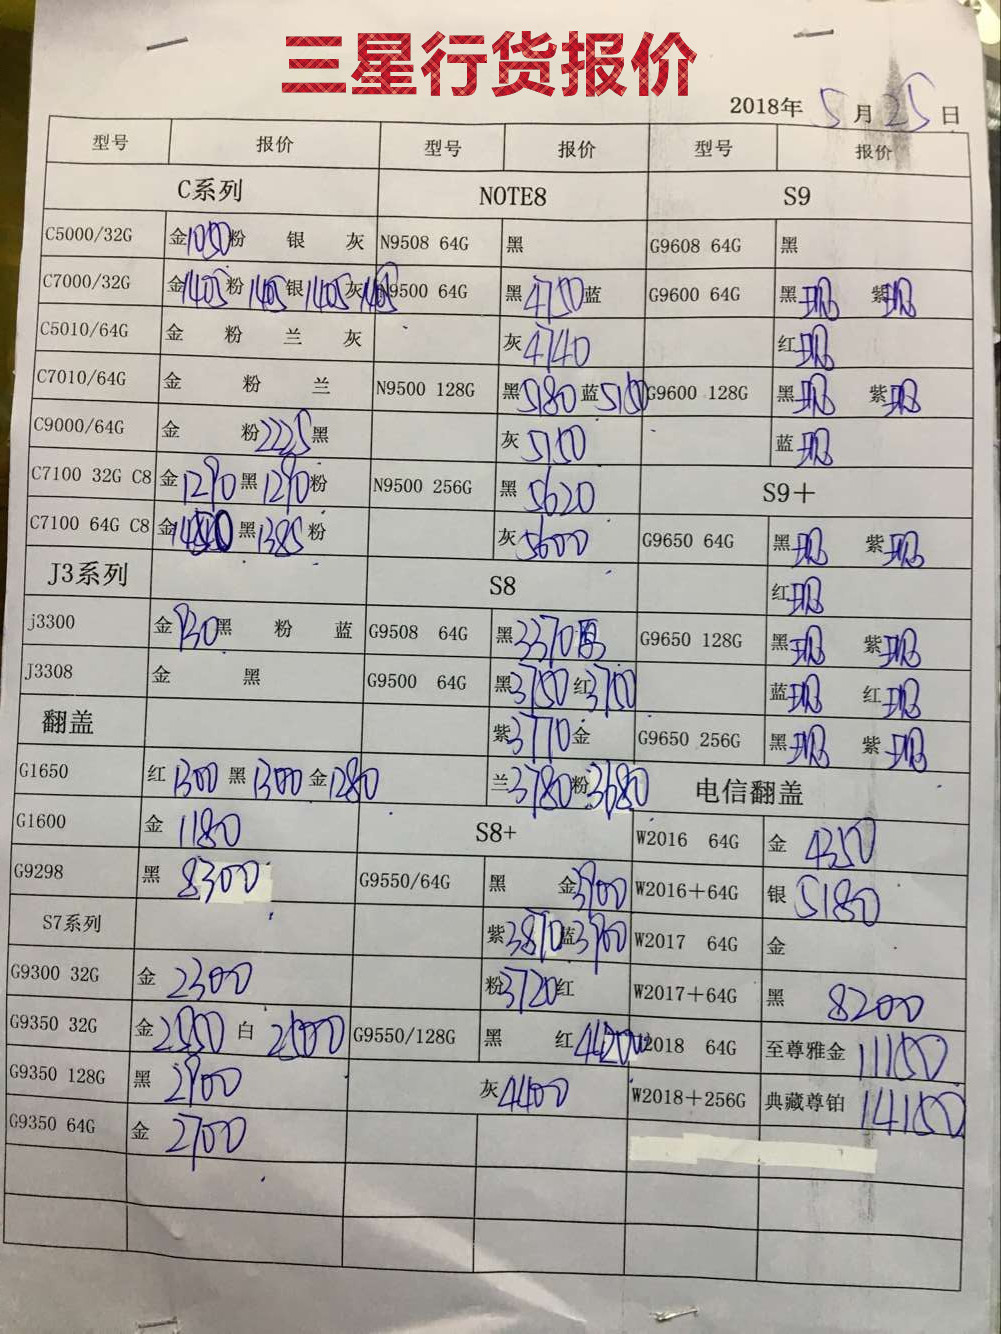 三星行货报价
2018年 5 月 25 日
型号 报价 型号 报价 型号 报价
C系列 NOTE8 S9
C5000/32G 金1050粉 银 灰 N9508 64G 黑 G9608 64G 黑
C7000/32G 金1405粉1405银1405灰1405 N9500 64G 黑4750蓝 G9600 64G 黑现 紫现
C5010/64G 金 粉 兰 灰 灰4740 红现
C7010/64G 金 粉 兰 N9500 128G 黑5180蓝5150 G9600 128G 黑现 紫现
C9000/64G 金 粉2225黑 灰5150 蓝现
C7100 32G C8 金1290黑1290粉 N9500 256G 黑5620 S9+
C7100 64G C8 金 黑1385粉 灰5600 G9650 64G 黑现 紫现
J3系列 S8 红现
j3300 金930黑 粉 蓝 G9508 64G 黑3370 G9650 128G 黑现 紫现
J3308 金 黑 G9500 64G 黑3750红3700 蓝现 红现
翻盖 紫3770金 G9650 256G 黑现 紫现
G1650 红1300黑1300金1280 兰3780粉3680 电信翻盖
G1600 金1180 S8+ W2016 64G 金4350
G9298 黑8300 G9550/64G 黑 金3900 W2016+64G 银5180
S7系列 紫3870蓝3900 W2017 64G 金
G9300 32G 金2300 粉3720红 W2017+64G 黑8200
G9350 32G 金2550白2500 G9550/128G 黑 红4420 W2018 64G 至尊雅金11100
G9350 128G 黑2900 灰4400 W2018+256G 典藏尊铂14100
G9350 64G 金2700